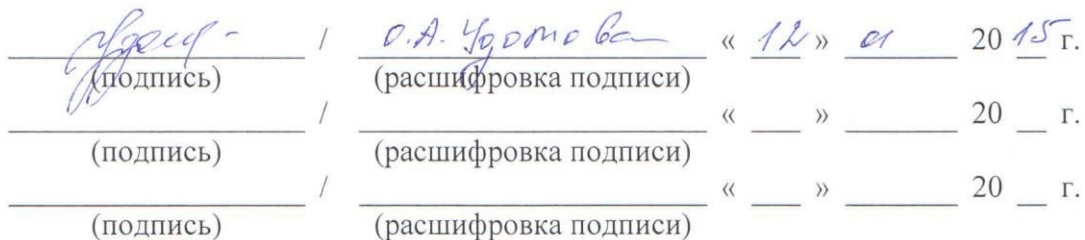 / О.А. Удотова « 12 » 01 20 15 г.
(подпись) (расшифровка подписи)
/ « » 20 г.
(подпись) (расшифровка подписи)
/ « » 20 г.
(подпись) (расшифровка подписи)